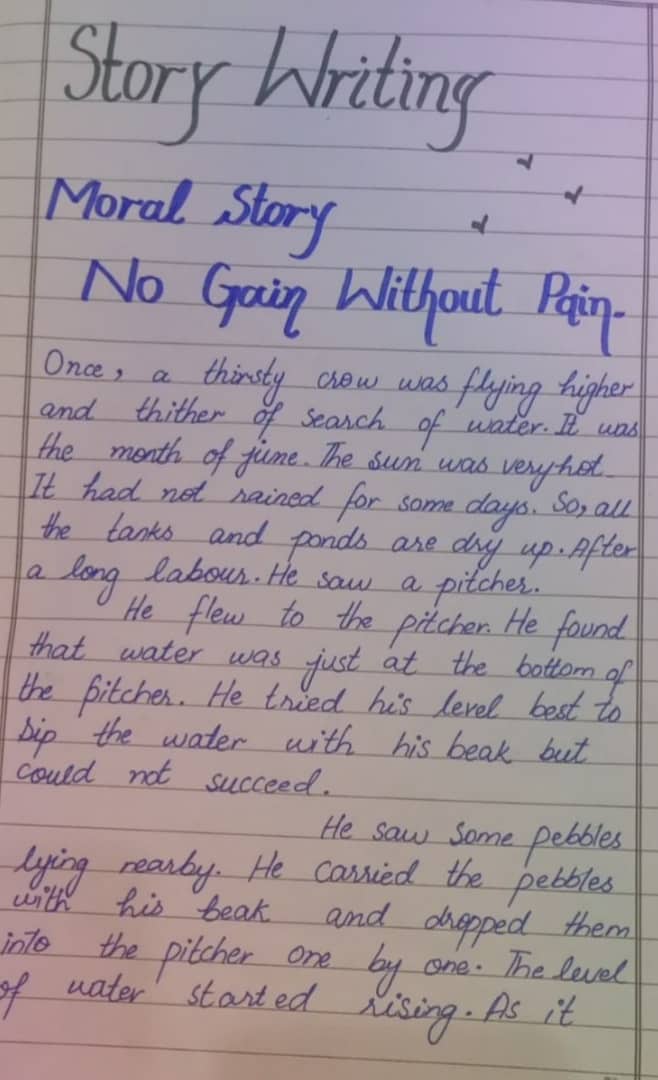 Story Writing
Moral Story
No Gain Without Pain.
Once, a thirsty crow was flying higher
and thither of search of water. It was
the month of june. The sun was very hot.
It had not rained for some days. So, all
the tanks and ponds are dry up. After
a long labour. He saw a pitcher.
He flew to the pitcher. He found
that water was just at the bottom of
the pitcher. He tried his level best to
sip the water with his beak but
could not succeed.
He saw some pebbles
lying nearby. He carried the pebbles
with his beak and dropped them
into the pitcher one by one. The level
of water started rising. As it